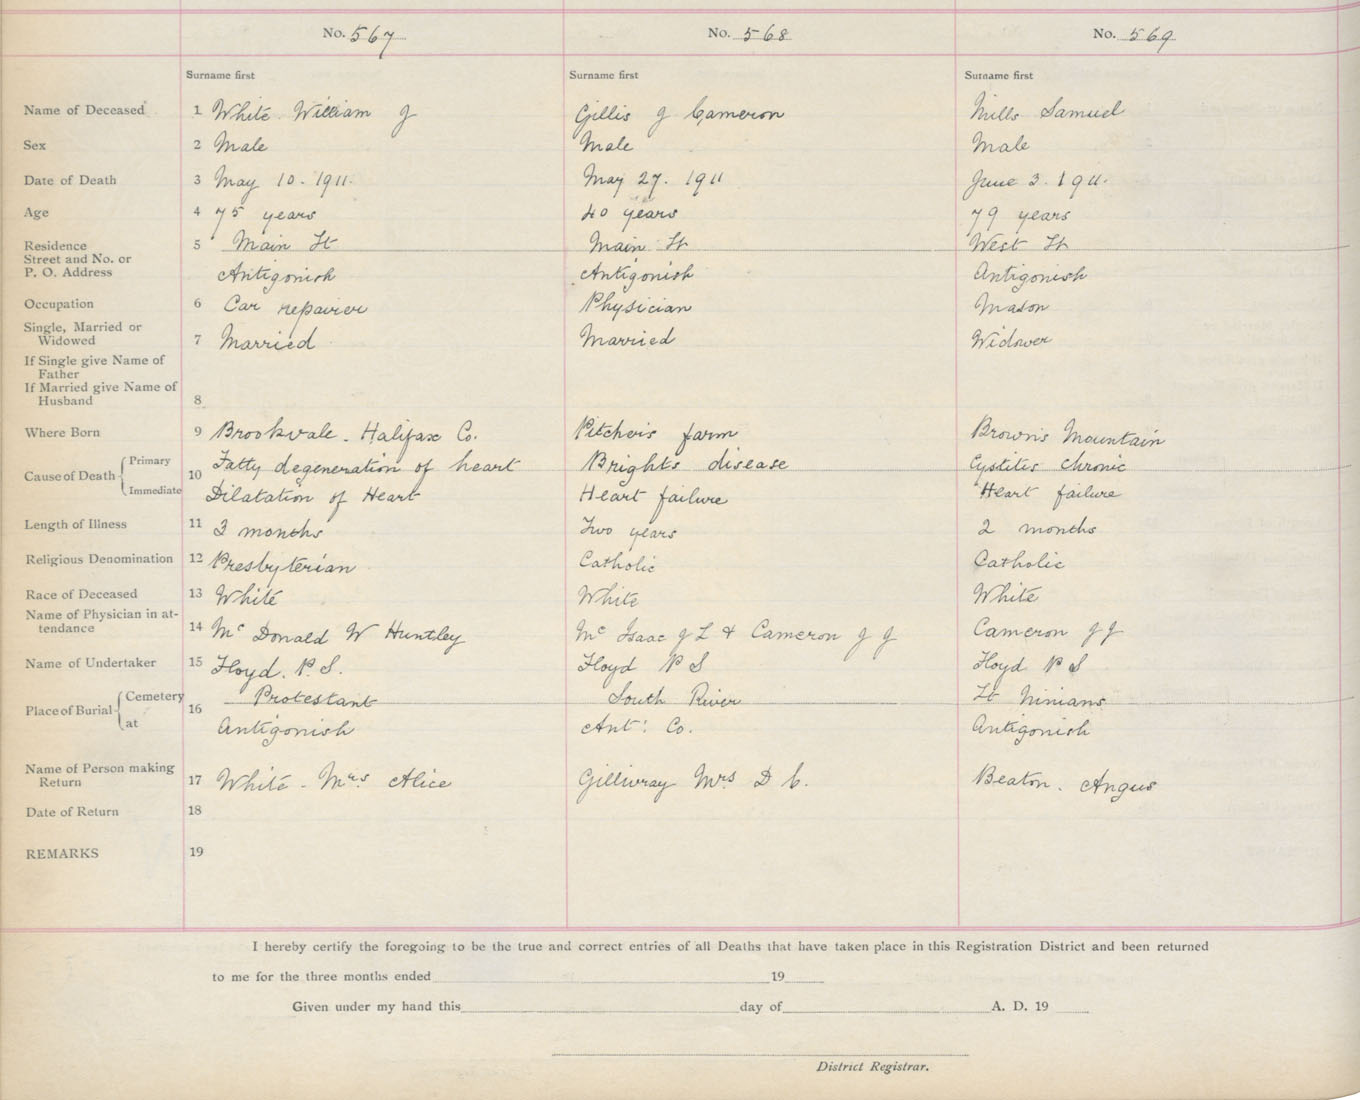 No. 567 No. 568 No. 569
Surname first Surname first Surname first
Name of Deceased 1 White William J Gillis J Cameron Mills Samuel
Sex 2 Male Male Male
Date of Death 3 May 10. 1911. May 27. 1911 June 3. 1911.
Age 4 75 years 40 years 79 years
Residence 5 Main St Main St West St
Street and No. or
P. O. Address Antigonish Antigonish Antigonish
Occupation 6 Car repairer Physician Mason
Single, Married or
Widowed 7 Married Married Widower
If Single give Name of
Father
If Married give Name of
Husband 8
Where Born 9 Brookvale - Halifax Co. Pitcher's farm Brown's Mountain
Cause of Death Primary 10 Fatty degeneration of heart Brights disease Cystites chronic
Immediate Dilatation of Heart Heart failure Heart failure
Length of Illness 11 3 months Two years 2 months
Religious Denomination 12 Presbyterian Catholic Catholic
Race of Deceased 13 White White White
Name of Physician in at-
tendance 14 Mc Donald W Huntley Mc Isaac J L & Cameron J J Cameron J J
Name of Undertaker 15 Floyd. P. S. Floyd P S Floyd P S
Place of Burial Cemetery 16 Protestant South River St Ninians
at Antigonish Ant: Co. Antigonish
Name of Person making
Return 17 White - Mrs. Alice Gillivray Mrs D C. Beaton. Angus
Date of Return 18
REMARKS 19
I hereby certify the foregoing to be the true and correct entries of all Deaths that have taken place in this Registration District and been returned
to me for the three months ended 19
Given under my hand this day of A. D. 19
District Registrar.